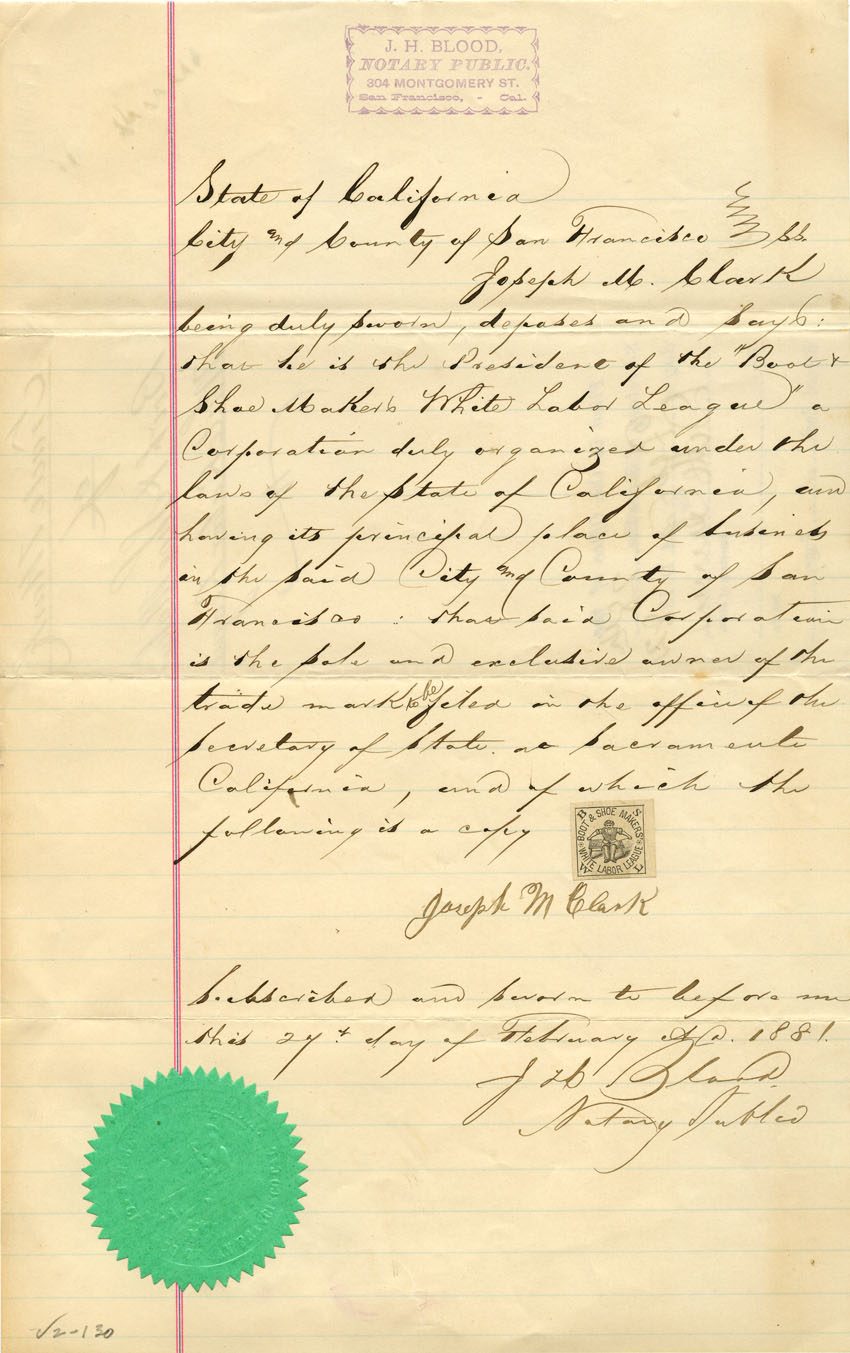 J. H. BLOOD,
NOTARY PUBLIC.
304 MONTGOMERY ST.
San Francisco, - Cal.
State of California
City and County of San Francisco } ss.
Joseph M. Clark
being duly sworn, deposes and says:
that he is the President of the "Boot &
Shoe Makers White Labor League" a
Corporation duly organized under the
laws of the State of California, and
having its principal place of business
in the said City and County of San
Francisco: that said Corporation
is the sole and exclusive owner of the
trade mark to be filed in the office of the
Secretary of State at Sacramento
California, and of which the
following is a copy
B S
BOOT & SHOE MAKERS'
WHITE LABOR LEAGUE
W L
Joseph M Clark
Subscribed and sworn to before me
this 27th day of February A.D. 1881.
J H Blood
Notary Public
V2-130